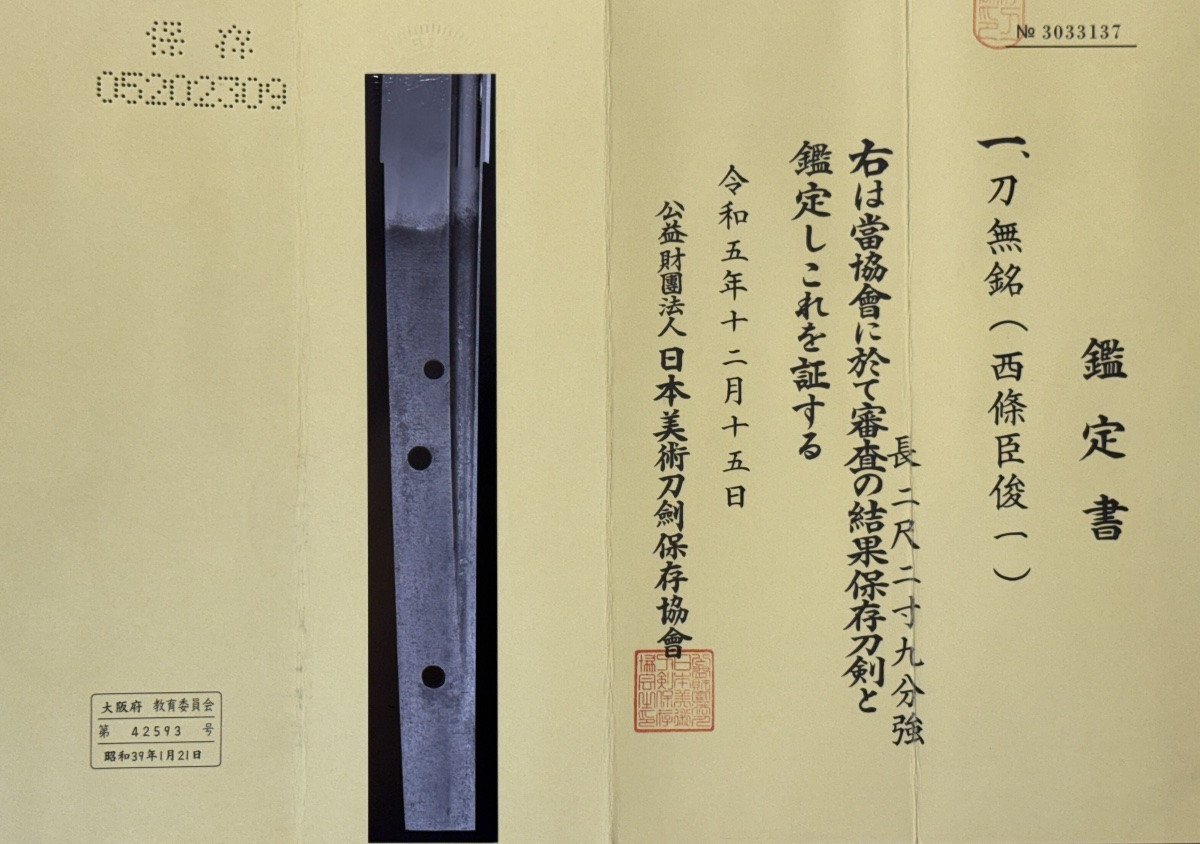 № 3033137
鑑定書
一、刀無銘(西條臣俊一)
長二尺二寸九分強
右は當協會に於て審査の結果保存刀剣と
鑑定しこれを証する
令和五年十二月十五日
公益財團法人日本美術刀劍保存協會
保存
05202309
大阪府 教育委員会
第 42593 号
昭和39年1月21日